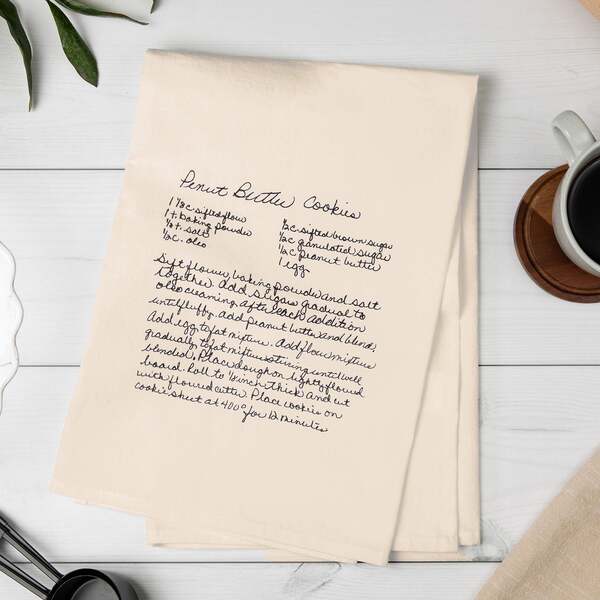 Penut Butter Cookies
1 ½c. sifted flour
1 t baking powder
½ t. salt
½c. oleo
½c. sifted brown sugar
½c granulated sugar
½c peanut butter
1 egg
Sift flour, baking powder and salt
together. Add sugar gradual to
oleo creaming after each addition
until fluffy. add peanut butter and blend.
Add egg to fat mixture. Add flour mixture
gradually to fat mixture stirring until well
blended. Place dough on lightly floured
board. Roll to ⅛ inch thick and cut
with floured cutter. Place cookies on
cookie sheet at 400° for 12 minutes